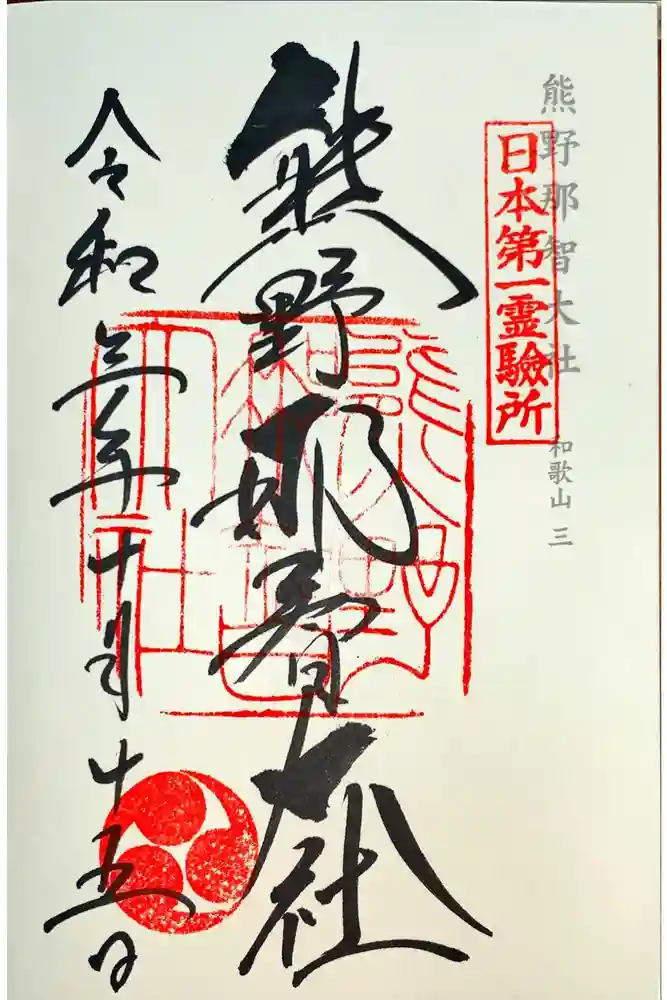 熊野那智大社 和歌山 三
日本第一霊驗所
熊野那智大社
令和三年十月十五日